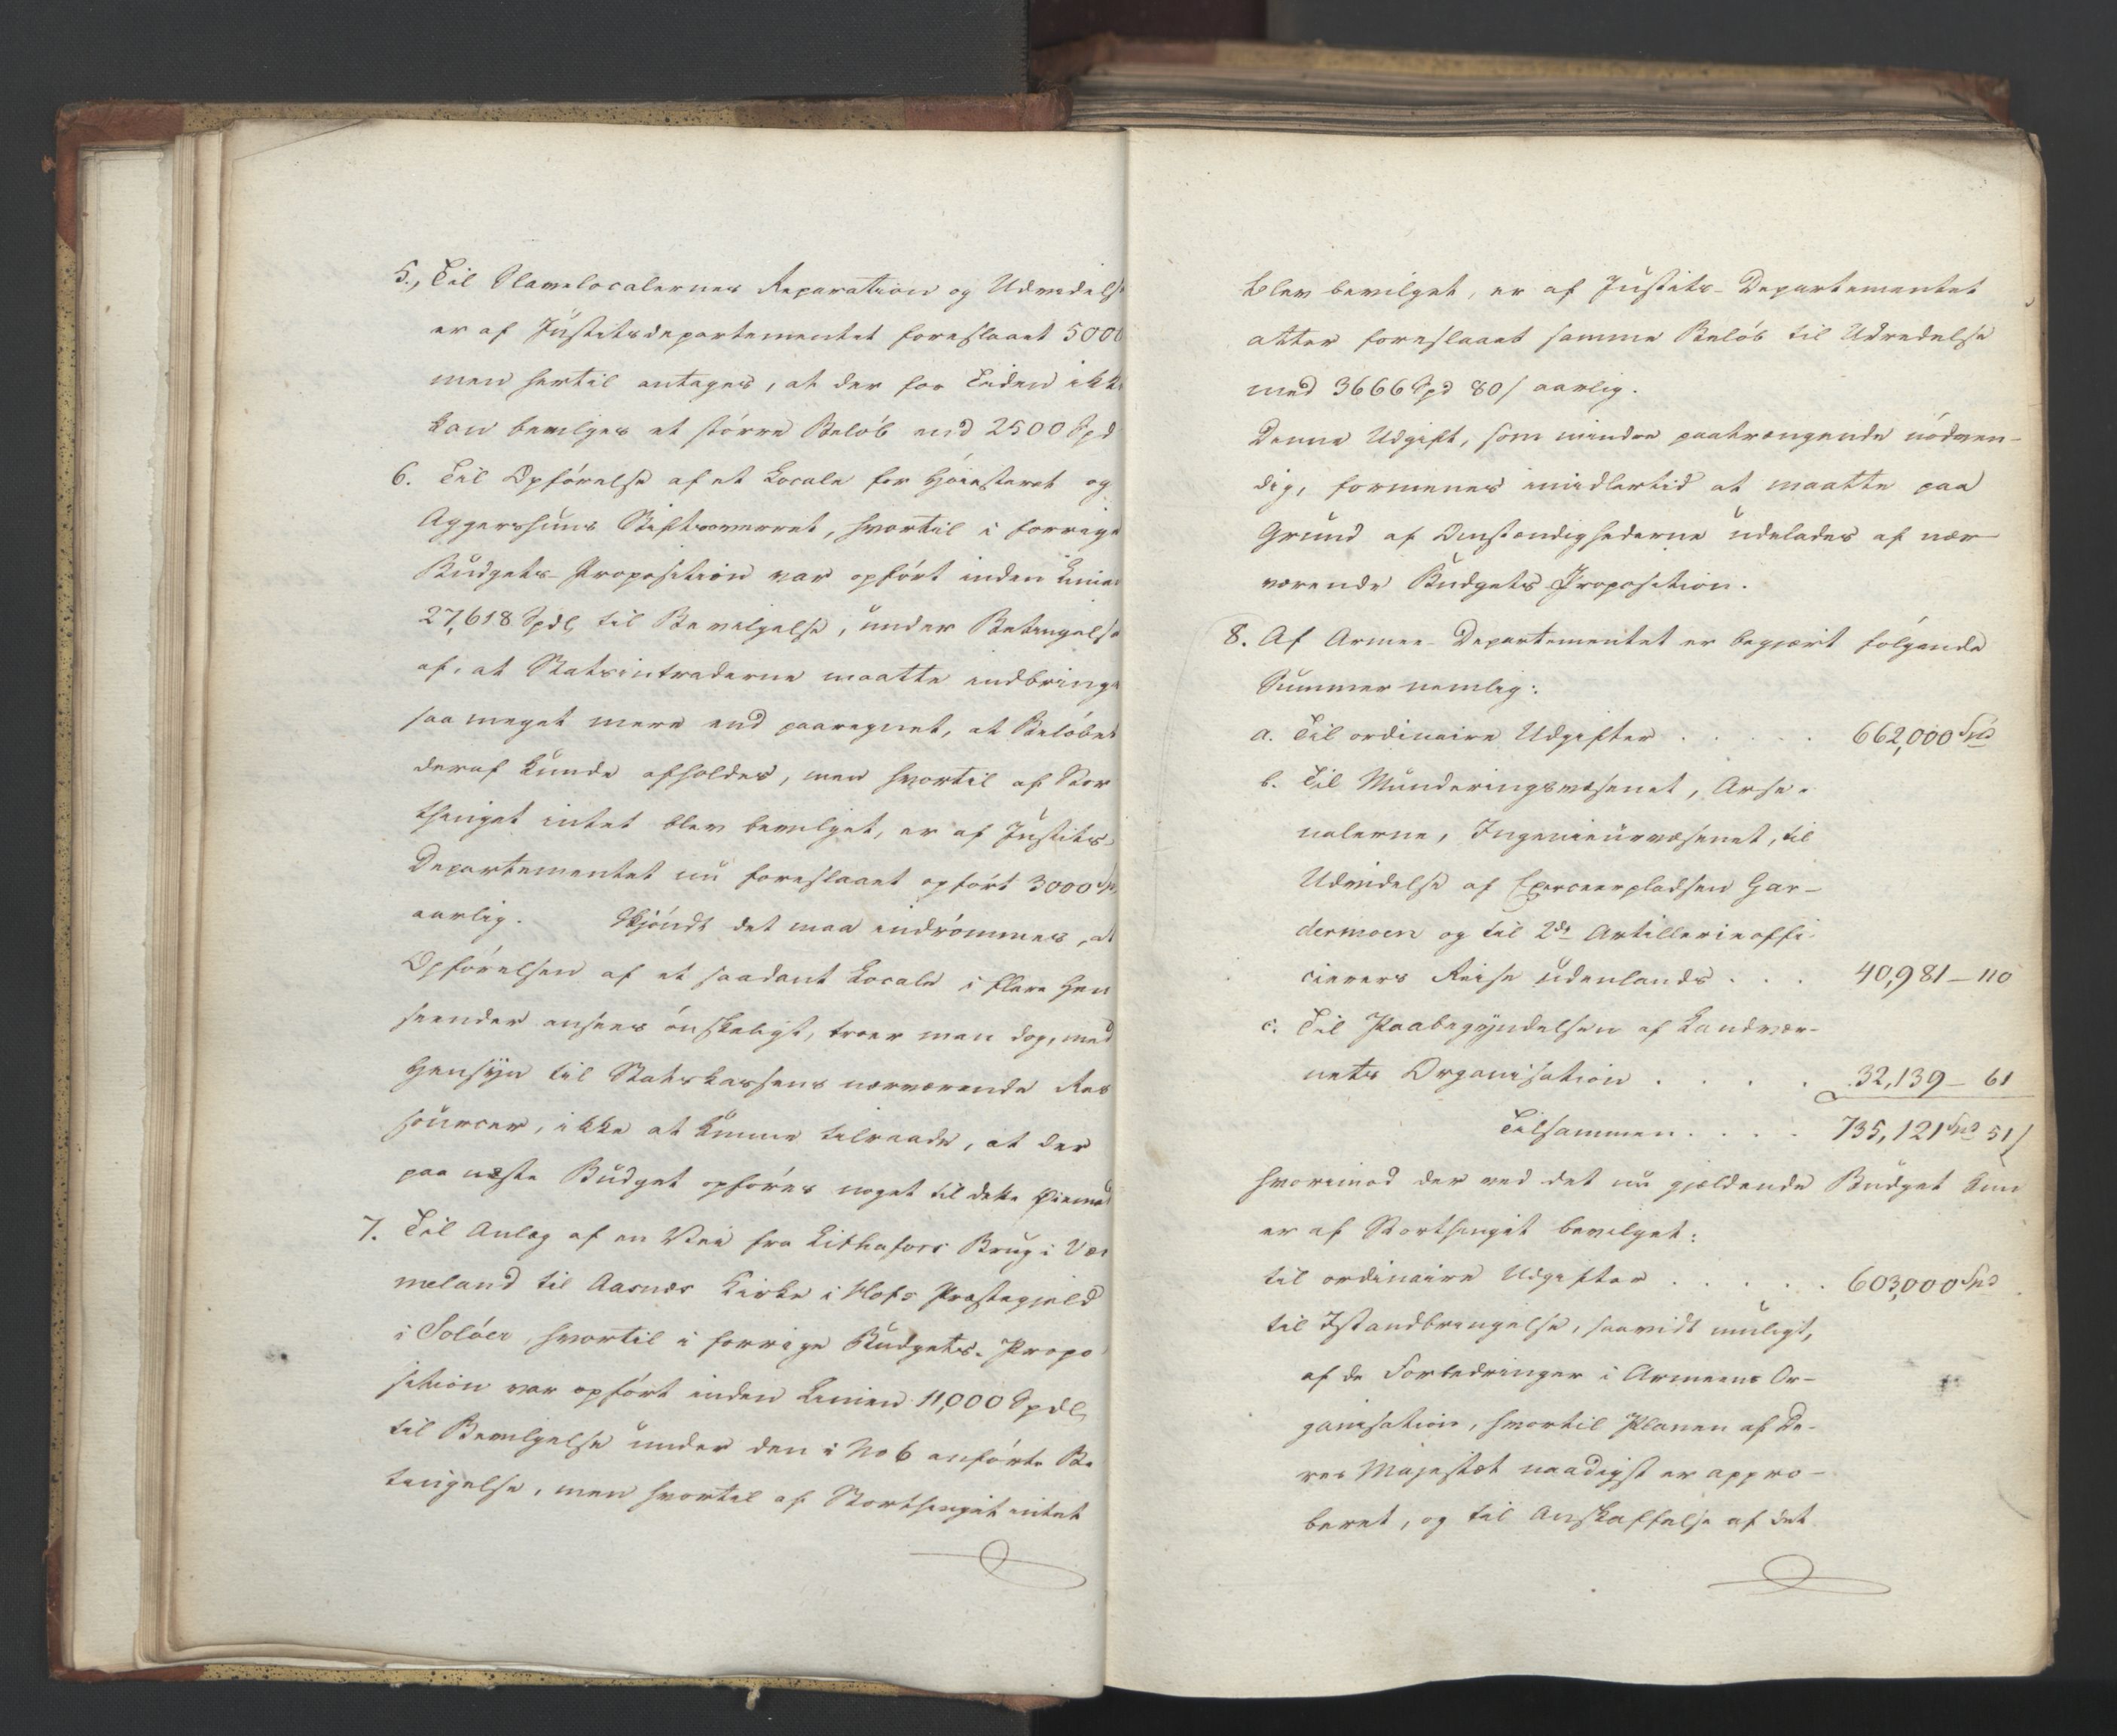 5., Til Slavelocalernes Reparation og Udvidelse
er af Justitsdepartementet foreslaaet 5000
men hertil antages, at der for Tiden ikke
kan bevilges et större Belöb end 2500 Spd
6. Til Opförelse af et Locale for Höiesteret og
Aggershuus Stiftsoverret, hvortil i forrige
Budgets-Proposition var opfört inden Linien
27,618 Spdl, til Bevilgelse, under Betingelse
af, at Statsintraderne maatte indbringe
saa meget mere end paaregnet, at Belöbet
deraf kunde afholdes, men hvortil af Stor
thinget intet blev bevilget, er af Justits-
Departementet nu foreslaaet opfört 3000 Spd
aarlig. Skjöndt det maa indrömmes, at
Opförelsen af et saadant Locale i flere Hen
seender ansees önskeligt, troer man dog, med
Hensyn til Statskassens nærværende Res
sourcer, ikke at kunne tilraade, at der
paa næste Budget opföres noget til dette Øiemed
7. Til Anlæg af en Vei fra Lithafors Brug i Vær
meland til Aasnæs Kirke i Hofs Præstegjeld
i Solöer, hvortil i forrige Budgets-Propo
sition var opfört inden Linien 11,000 Spdl,
til Bevilgelse under den i No 6 anförte Be
tingelse, men hvortil af Storthinget intet
blev bevilget, er af Justits-Departementet
atter foreslaaet samme Belöb til Udredelse
med 3666 Spd 80/ aarlig.
Denne Udgift, som mindre paatrængende nödven-
dig, formenes imidlertid at maatte paa
Grund af Omstændighederne udelades af nær
værende Budgets Proposition.
8. Af Armee-Departementet er begjært fölgende
Summer nemlig:
a. Til ordinaire Udgifter . . . . . 662,000 Spd
b. Til Munderingsvæsenet, Arse-
nalerne, Ingenieurvæsenet, til
Udvidelse af Exerceerpladsen Gar-
dermoen og til 2de Artillerieoffi
cierers Reise udenlands . . . 40,981 – 110
c. Til Paabegyndelsen af Landvær-
nets Organisation . . . . 32,139 – 61
Tilsammen . . . . 735,121 Spd 51/
hvorimod der ved det nu gjældende Budget kun
er af Storthinget bevilget:
til ordinaire Udgifter . . . . . 603,000 Spd
til Istandbringelse, saavidt muligt,
af de Forbedringer i Armeens Or-
ganisation, hvortil Planen af De-
res Majestæt naadigst er appro-
beret, og til Anskaffelse af det